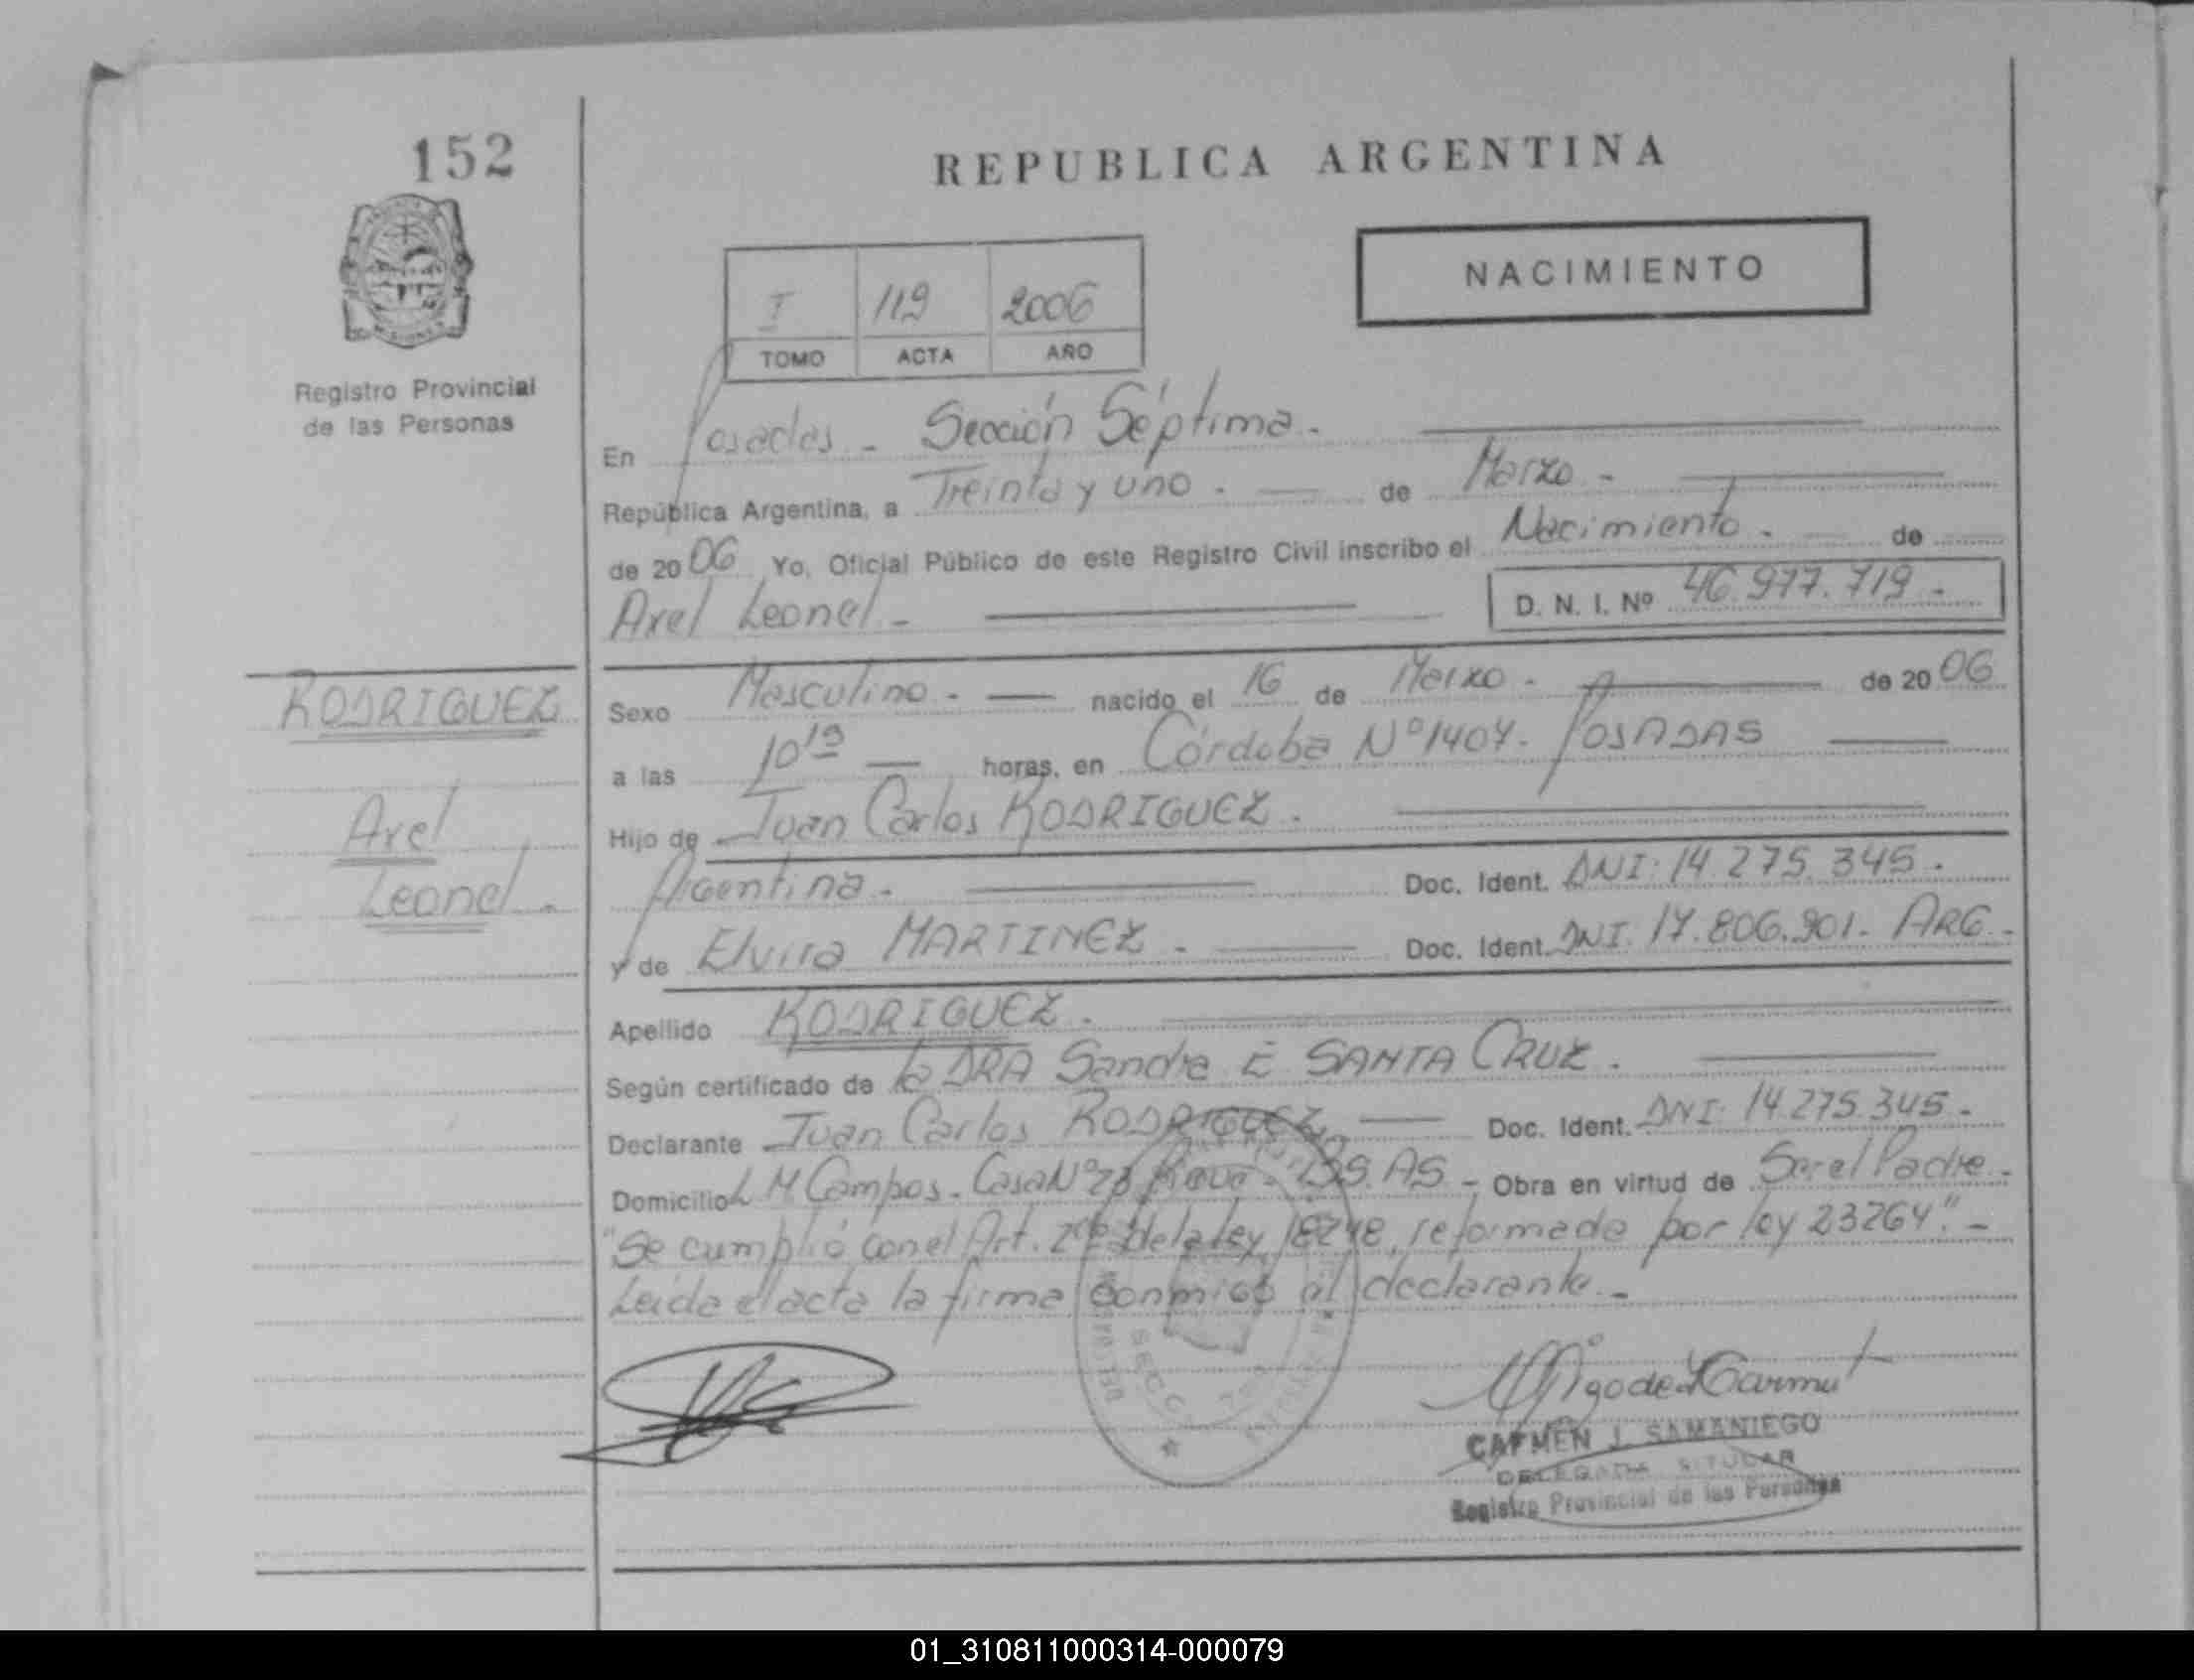 152
REPUBLICA ARGENTINA
NACIMIENTO
I 119 2006
TOMO ACTA AÑO
Registro Provincial
de las Personas
En Posadas - Sección Séptima.
República Argentina, a Treinta y uno. de Marzo.
de 2006 Yo, Oficial Público de este Registro Civil inscribo el Nacimiento. de
Axel Leonel. D. N. I. Nº 46.977.719.
RODRIGUEZ
Axel
Leonel.
Sexo Masculino. nacido el 16 de Marzo. de 2006
a las 10 19 horas, en Córdoba Nº 1407. POSADAS
Hijo de Juan Carlos RODRIGUEZ.
Argentina. Doc. Ident. DNI: 14.275.345.
y de Elvira MARTINEZ. Doc. Ident. DNI. 17.806.901. ARG.
Apellido RODRIGUEZ.
Según certificado de la DRA Sandra E SANTA CRUZ.
Declarante Juan Carlos RODRIGUEZ Doc. Ident. DNI: 14.275.345.
Domicilio L M Campos. Casa Nº BS. AS - Obra en virtud de Ser el Padre.
"Se cumplió con el Art. de la ley 18248, reformada por ley 23264".
Leída el acta la firma conmigo el declarante.
CARMEN J. SAMANIEGO
DELEGADA TITULAR
Registro Provincial de las Personas
01_310811000314-000079